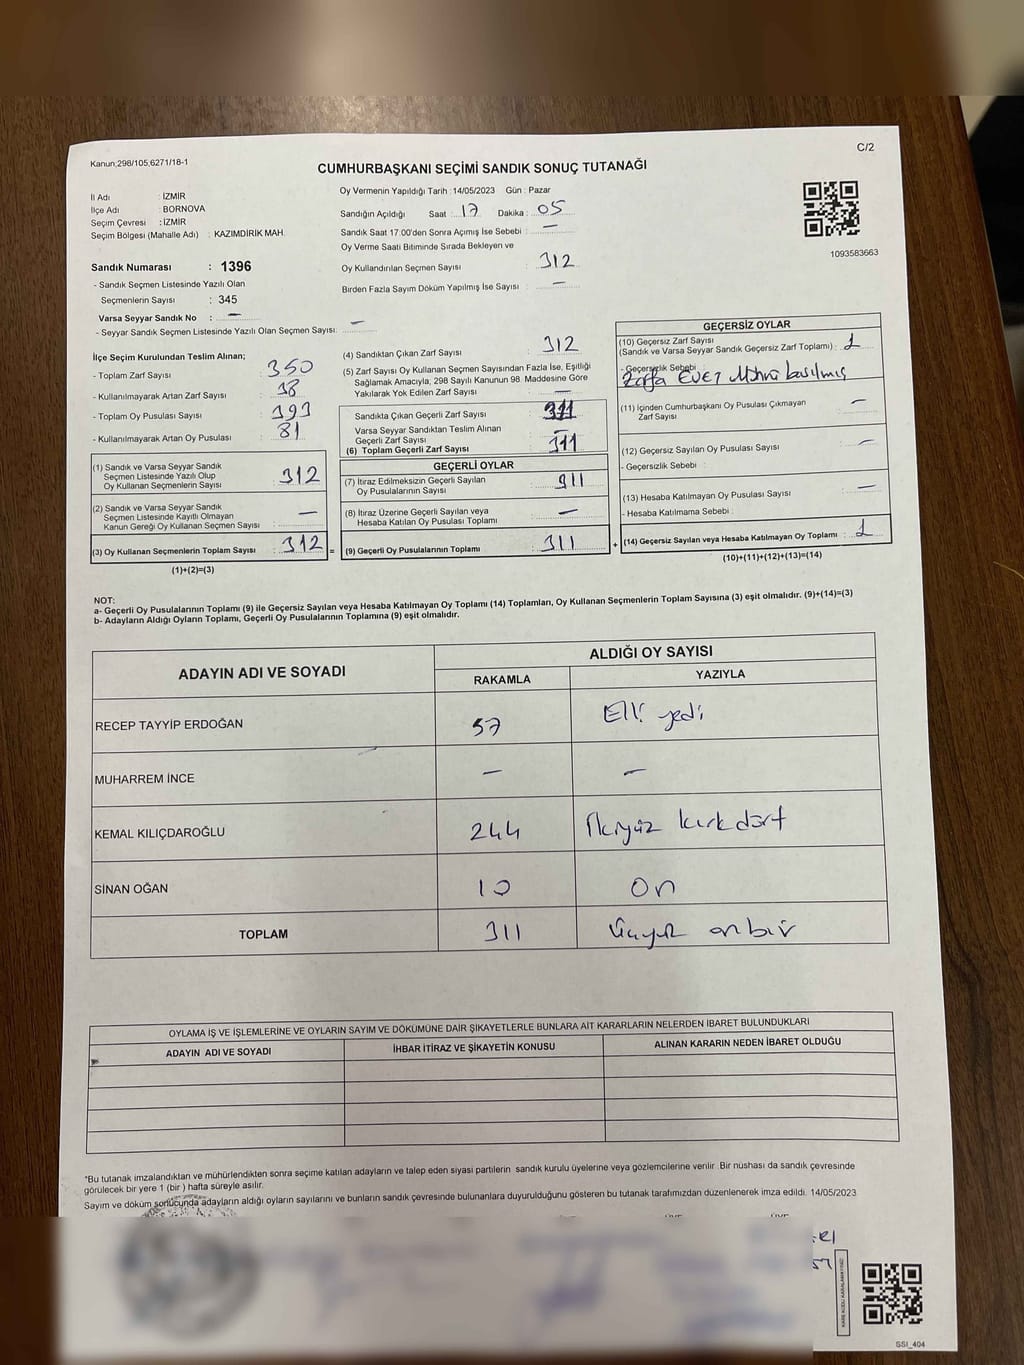 C/2
Kanun;298/105,6271/18-1
CUMHURBAŞKANI SEÇİMİ SANDIK SONUÇ TUTANAĞI
İl Adı : İZMİR
İlçe Adı : BORNOVA
Seçim Çevresi : İZMİR
Seçim Bölgesi (Mahalle Adı) : KAZIMDİRİK MAH.
Sandık Numarası : 1396
- Sandık Seçmen Listesinde Yazılı Olan
Seçmenlerin Sayısı : 345
Varsa Seyyar Sandık No : —
- Seyyar Sandık Listesinde Yazılı Olan Seçmen Sayısı: —
Oy Vermenin Yapıldığı Tarih : 14/05/2023 Gün : Pazar
Sandığın Açıldığı Saat : 17 Dakika : 05
Sandık Saat 17:00'den Sonra Açımış İse Sebebi : —
Oy Verme Saati Bitiminde Sırada Bekleyen ve
Oy Kullandırılan Seçmen Sayısı : 312
Birden Fazla Sayım Döküm Yapılmış İse Sayısı : —
1093583663
İlçe Seçim Kurulundan Teslim Alınan;
- Toplam Zarf Sayısı : 350
- Kullanılmayarak Artan Zarf Sayısı : 38
- Toplam Oy Pusulası Sayısı : 393
- Kullanılmayarak Artan Oy Pusulası : 81
(1) Sandık ve Varsa Seyyar Sandık
Seçmen Listesinde Yazılı Olup
Oy Kullanan Seçmenlerin Sayısı : 312
(2) Sandık ve Varsa Seyyar Sandık
Seçmen Listesinde Kayıtlı Olmayan
Kanun Gereği Oy Kullanan Seçmen Sayısı : —
(3) Oy Kullanan Seçmenlerin Toplam Sayısı : 312 =
(1)+(2)=(3)
(4) Sandıktan Çıkan Zarf Sayısı : 312
(5) Zarf Sayısı Oy Kullanan Seçmen Sayısından Fazla İse, Eşitliği
Sağlamak Amacıyla, 298 Sayılı Kanunun 98. Maddesine Göre
Yakılarak Yok Edilen Zarf Sayısı : —
Sandıkta Çıkan Geçerli Zarf Sayısı : 311
Varsa Seyyar Sandıktan Teslim Alınan
Geçerli Zarf Sayısı : —
(6) Toplam Geçerli Zarf Sayısı : 311
GEÇERLİ OYLAR
(7) İtiraz Edilmeksizin Geçerli Sayılan
Oy Pusulalarının Sayısı : 311
(8) İtiraz Üzerine Geçerli Sayılan veya
Hesaba Katılan Oy Pusulası Toplamı : —
(9) Geçerli Oy Pusulalarının Toplamı : 311 +
GEÇERSİZ OYLAR
(10) Geçersiz Zarf Sayısı
(Sandık ve Varsa Seyyar Sandık Geçersiz Zarf Toplamı) : 1
- Geçersizlik Sebebi :
Zarfa EVET Mührü basılmış
(11) İçinden Cumhurbaşkanı Oy Pusulası Çıkmayan
Zarf Sayısı : —
(12) Geçersiz Sayılan Oy Pusulası Sayısı : —
- Geçersizlik Sebebi :
(13) Hesaba Katılmayan Oy Pusulası Sayısı : —
- Hesaba Katılmama Sebebi :
(14) Geçersiz Sayılan veya Hesaba Katılmayan Oy Toplamı : 1
(10)+(11)+(12)+(13)=(14)
NOT:
a- Geçerli Oy Pusulalarının Toplamı (9) ile Geçersiz Sayılan veya Hesaba Katılmayan Oy Toplamı (14) Toplamları, Oy Kullanan Seçmenlerin Toplam Sayısına (3) eşit olmalıdır. (9)+(14)=(3)
b- Adayların Aldığı Oyların Toplamı, Geçerli Oy Pusulalarının Toplamına (9) eşit olmalıdır.
ADAYIN ADI VE SOYADI ALDIĞI OY SAYISI
RAKAMLA YAZIYLA
RECEP TAYYİP ERDOĞAN 57 Elli yedi
MUHARREM İNCE — —
KEMAL KILIÇDAROĞLU 244 İkiyüz kırkdört
SİNAN OĞAN 10 On
TOPLAM 311 Üçyüz onbir
OYLAMA İŞ VE İŞLEMLERİNE VE OYLARIN SAYIM VE DÖKÜMÜNE DAİR ŞİKAYETLERLE BUNLARA AİT KARARLARIN NELERDEN İBARET BULUNDUKLARI
ADAYIN ADI VE SOYADI İHBAR İTİRAZ VE ŞİKAYETİN KONUSU ALINAN KARARIN NEDEN İBARET OLDUĞU
*Bu tutanak imzalandıktan ve mühürlendikten sonra seçime katılan adayların ve talep eden siyasi partilerin sandık kurulu üyelerine veya gözlemcilerine verilir. Bir nüshası da sandık çevresinde
görülecek bir yere 1 (bir ) hafta süreyle asılır.
Sayım ve döküm sonucunda adayların aldığı oyların sayılarını ve bunların sandık çevresinde bulunanlara duyurulduğunu gösteren bu tutanak tarafımızdan düzenlenerek imza edildi. 14/05/2023
SSI_404